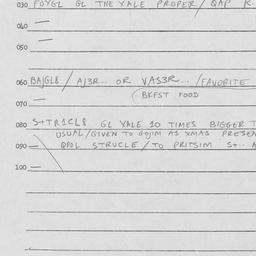 030 FOYGL GL THE YALE PROPER / QAP K-
040 —
050
060 BAJGL8 / AJ3R... OR VAS3R... / FAVORITE
BKFST FOOD
070 —
080 S+TR1CL8 GL YALE 10 TIMES BIGGER T
USUAL / GIVEN TO GOJIM AS XMAS PRESEN
090 — QPOL STRUCLE / TO PRITSIM S+.. A
100 —